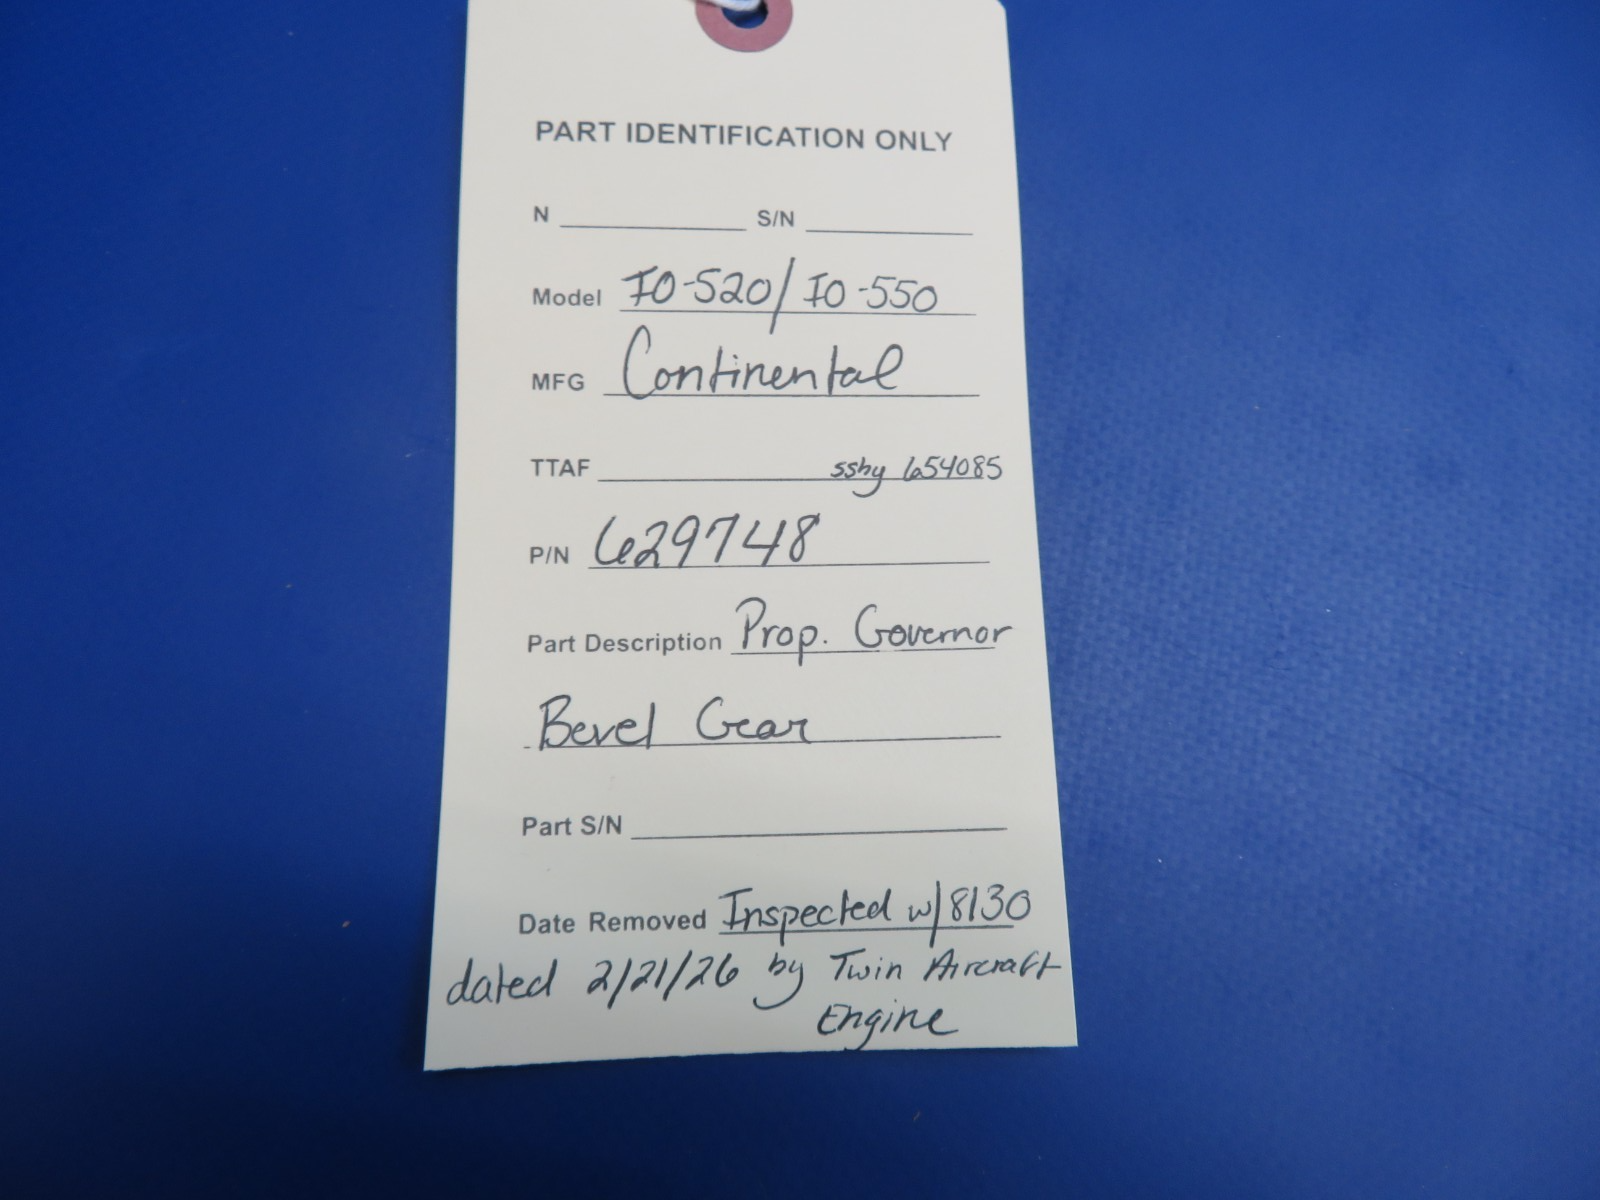 PART IDENTIFICATION ONLY
N S/N
Model IO-520/IO-550
MFG Continental
TTAF ssby 654085
P/N 629748
Part Description Prop. Governor
Bevel Gear
Part S/N
Date Removed Inspected w/8130
dated 2/21/26 by Twin Aircraft
Engine